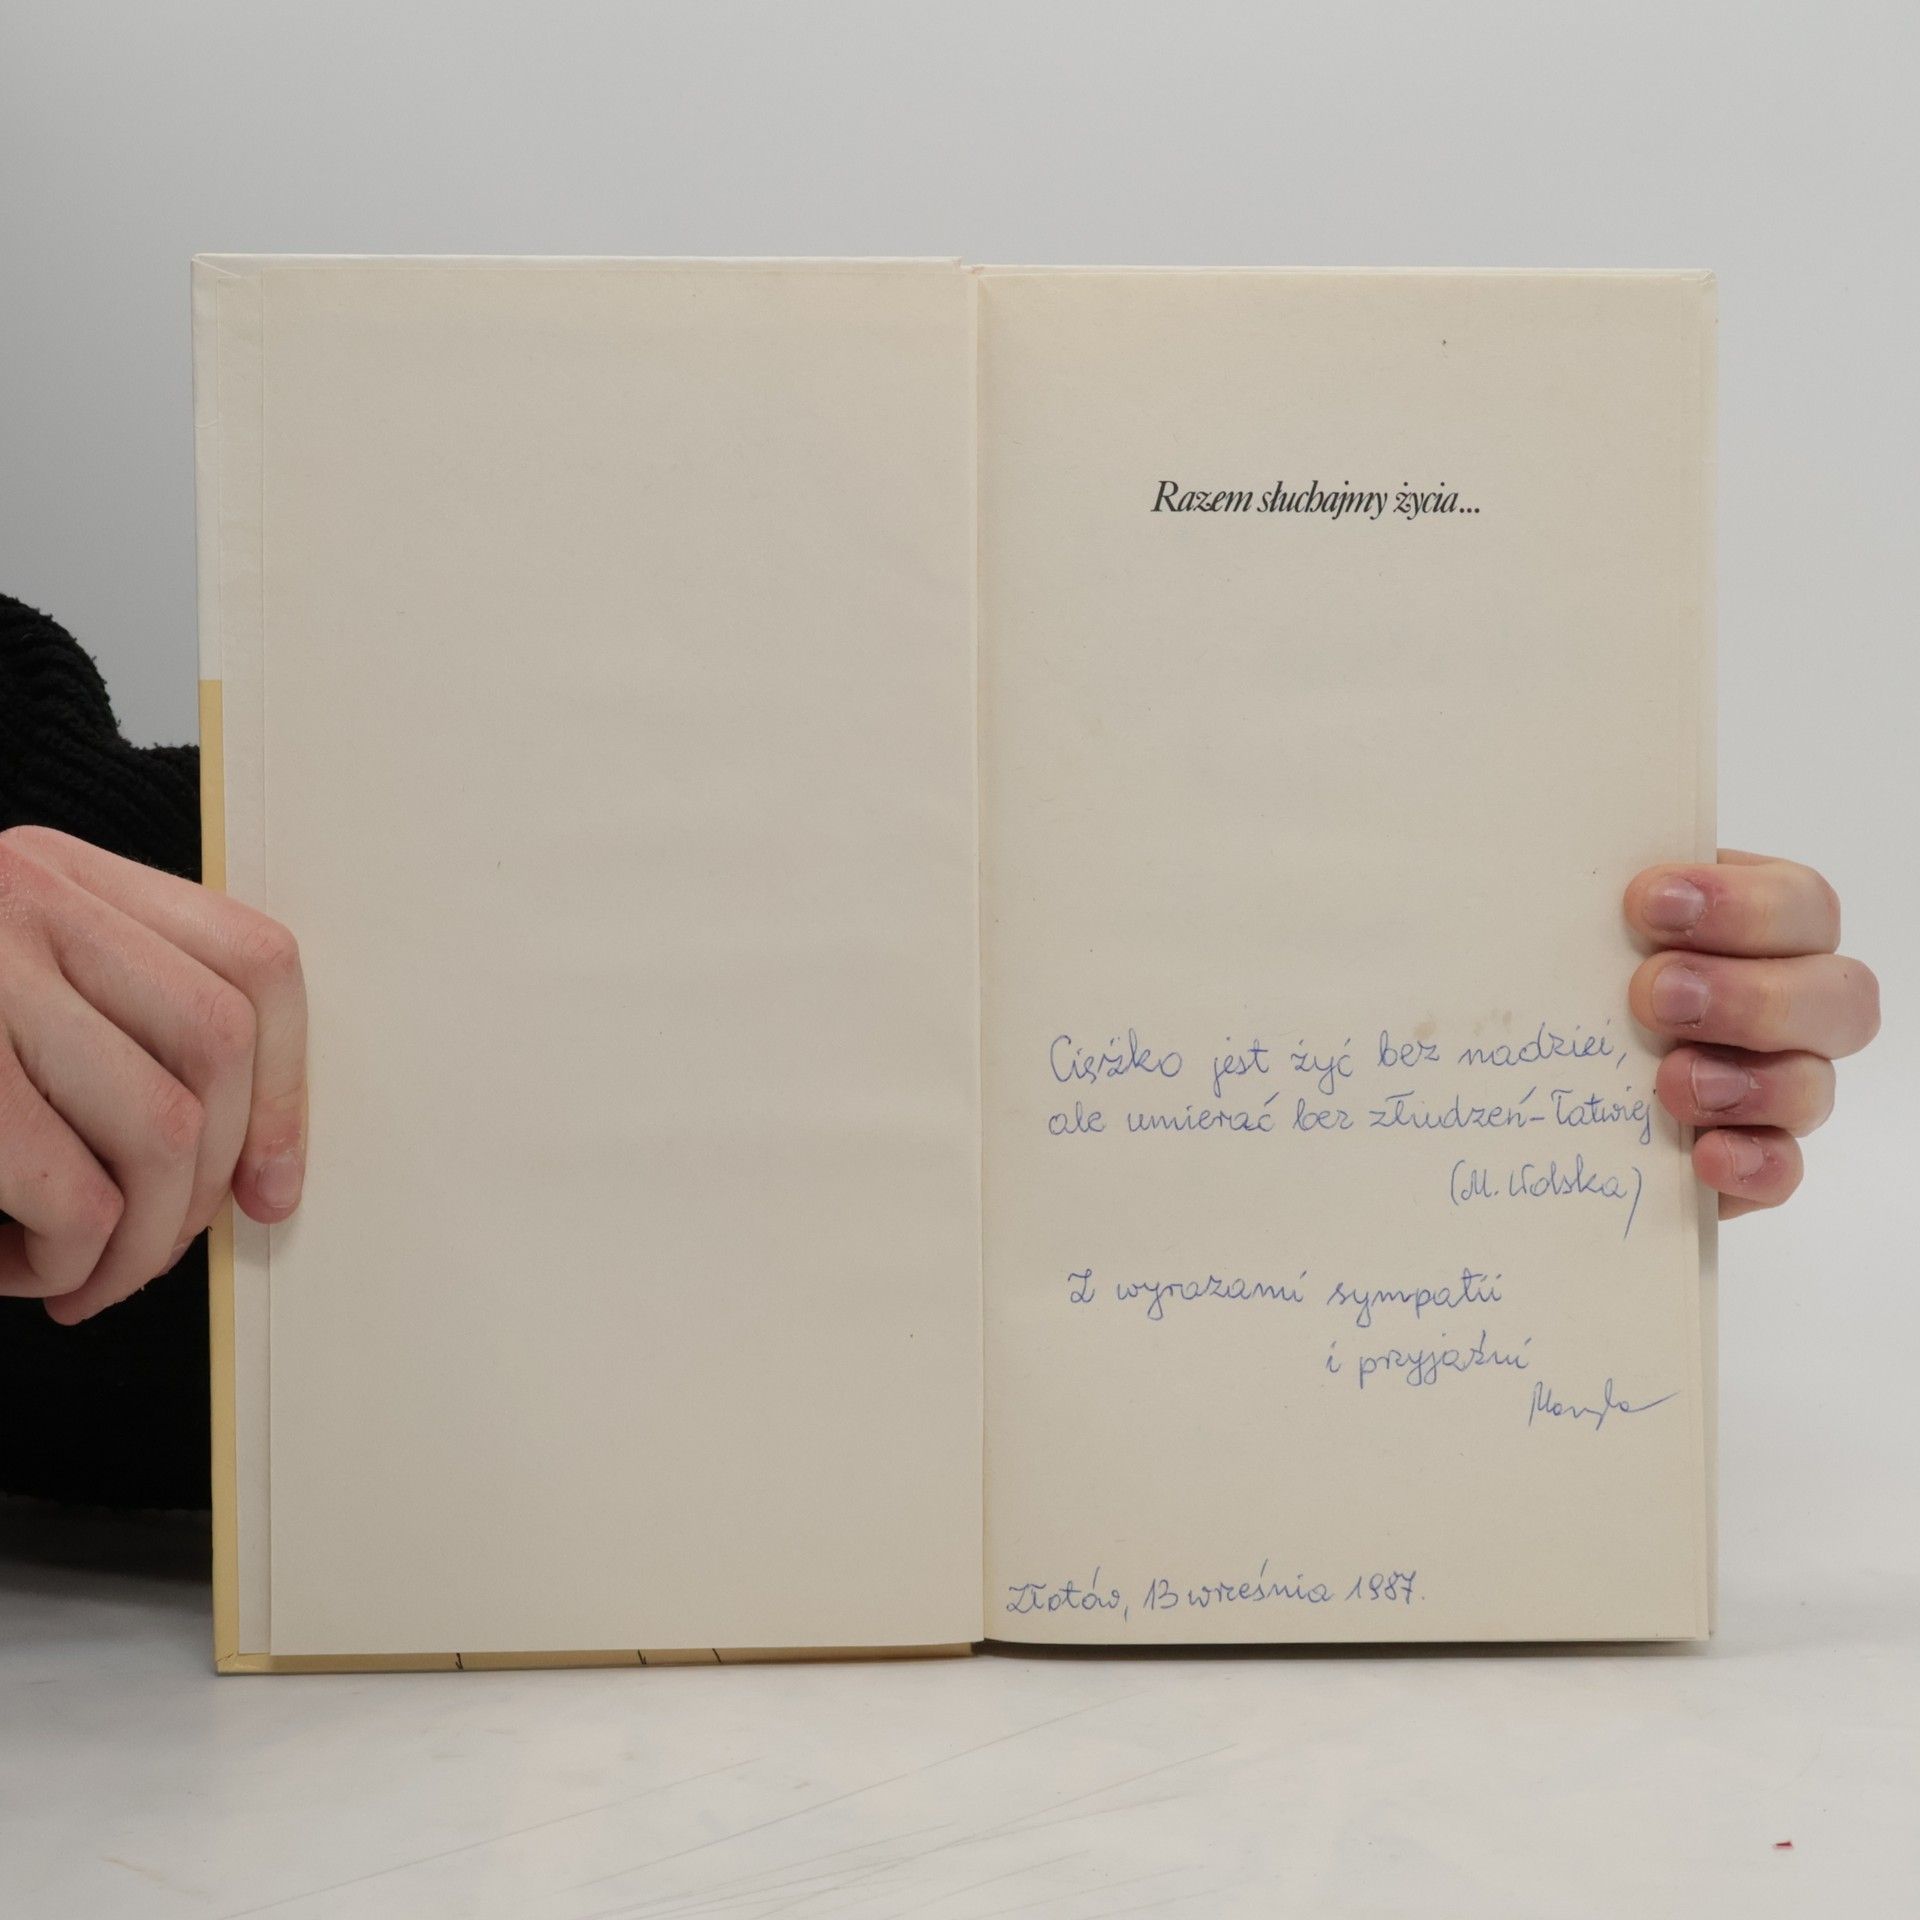 Razem słuchajmy życia...
Ciężko jest żyć bez nadziei,
ale umierać bez złudzeń - łatwiej
(M. Wolska)
Z wyrazami sympatii
i przyjaźni
Maryla
Złotów, 13 września 1987.